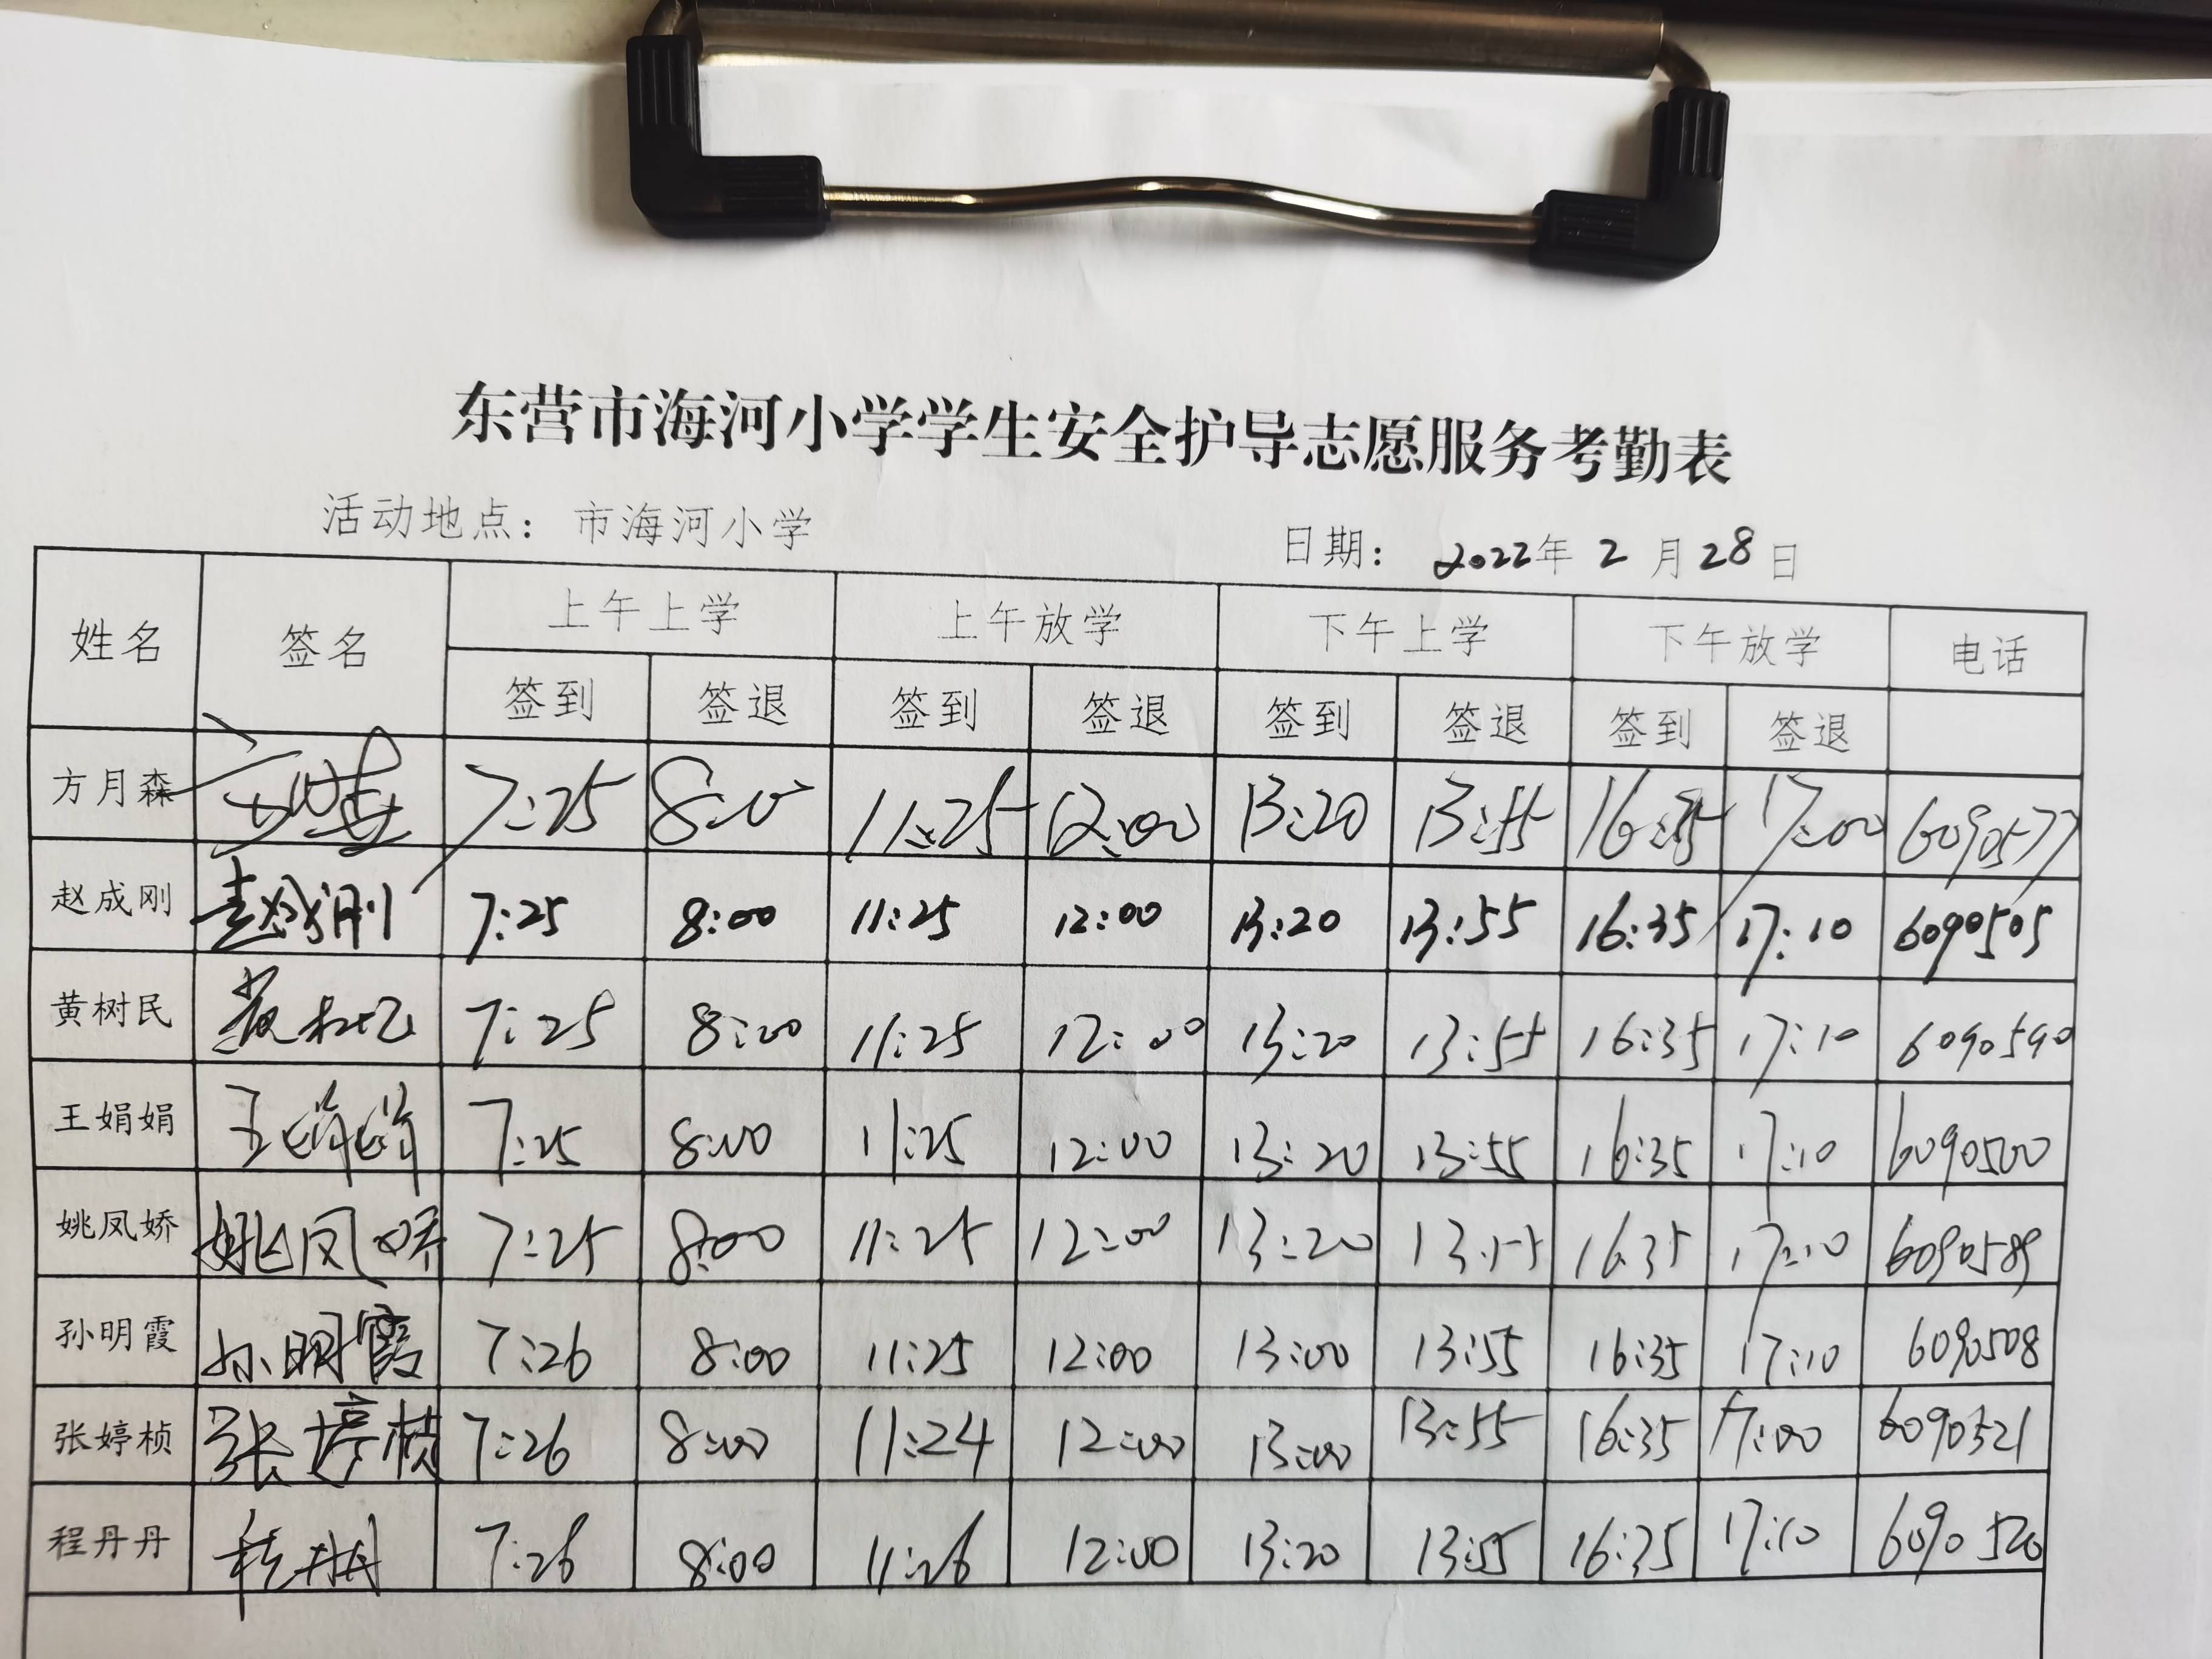 东营市海河小学学生安全护导志愿服务考勤表
活动地点：市海河小学 日期：2022年2月28日
姓名 签名 上午上学 上午放学 下午上学 下午放学 电话
签到 签退 签到 签退 签到 签退 签到 签退
方月森 7:25 8:00 11:25 12:00 13:20 13:55 17:00 6090577
赵成刚 赵成刚 7:25 8:00 11:25 12:00 13:20 13:55 16:35 17:10 6090505
黄树民 黄树民 7:25 8:00 11:25 12:00 13:20 13:55 16:35 17:10 6090590
王娟娟 王娟娟 7:25 8:00 11:25 12:00 13:20 13:55 16:35 17:10 6090500
姚凤娇 姚凤娇 7:25 8:00 11:25 12:00 13:20 13:55 16:35 17:10 6090589
孙明霞 孙明霞 7:26 8:00 11:25 12:00 13:00 13:55 16:35 17:10 6090508
张婷桢 张婷桢 7:26 8:00 11:24 12:00 13:00 13:55 16:35 17:00 6090521
程丹丹 程丹丹 7:26 8:00 11:26 12:00 13:20 13:55 16:35 17:10 6090520